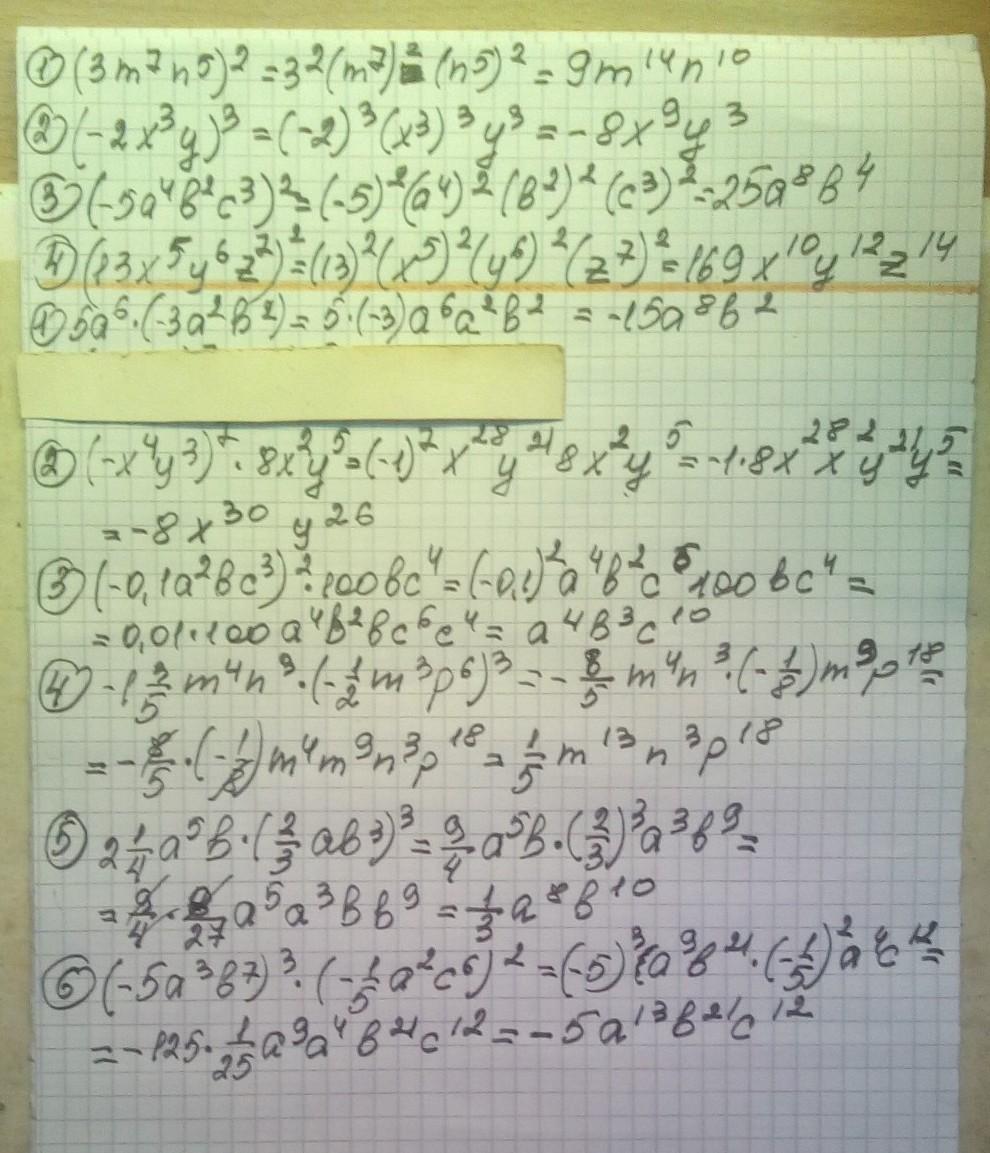 ① (3m⁷n⁵)² = 3²(m⁷)²(n⁵)² = 9m¹⁴n¹⁰
② (-2x³y)³ = (-2)³(x³)³y³ = -8x⁹y³
③ (-5a⁴b²c³)² = (-5)²(a⁴)²(b²)²(c³)² = 25a⁸b⁴
④ (13x⁵y⁶z⁷)² = (13)²(x⁵)²(y⁶)²(z⁷)² = 169x¹⁰y¹²z¹⁴
① 5a⁶·(-3a²b²) = 5·(-3)a⁶a²b² = -15a⁸b²
② (-x⁴y³)⁷·8x²y⁵ = (-1)⁷x²⁸y²¹8x²y⁵ = -1·8x²⁸x²y²¹y⁵ =
= -8x³⁰y²⁶
③ (-0,1a²bc³)²·100bc⁴ = (-0,1)²a⁴b²c⁶100bc⁴ =
= 0,01·100a⁴b²bc⁶c⁴ = a⁴b³c¹⁰
④ -1 3/5 m⁴n³·(-1/2 m³p⁶)³ = -8/5 m⁴n³·(-1/8)m⁹p¹⁸ =
= -8/5·(-1/8)m⁴m⁹n³p¹⁸ = 1/5 m¹³n³p¹⁸
⑤ 2 1/4 a⁵b·(2/3 ab³)³ = 9/4 a⁵b·(2/3)³a³b⁹ =
= 9/4·8/27 a⁵a³bb⁹ = 1/3 a⁸b¹⁰
⑥ (-5a³b⁷)³·(-1/5 a²c⁶)² = (-5)³a⁹b²¹·(-1/5)²a⁴c¹² =
= -125·1/25 a⁹a⁴b²¹c¹² = -5a¹³b²¹c¹²